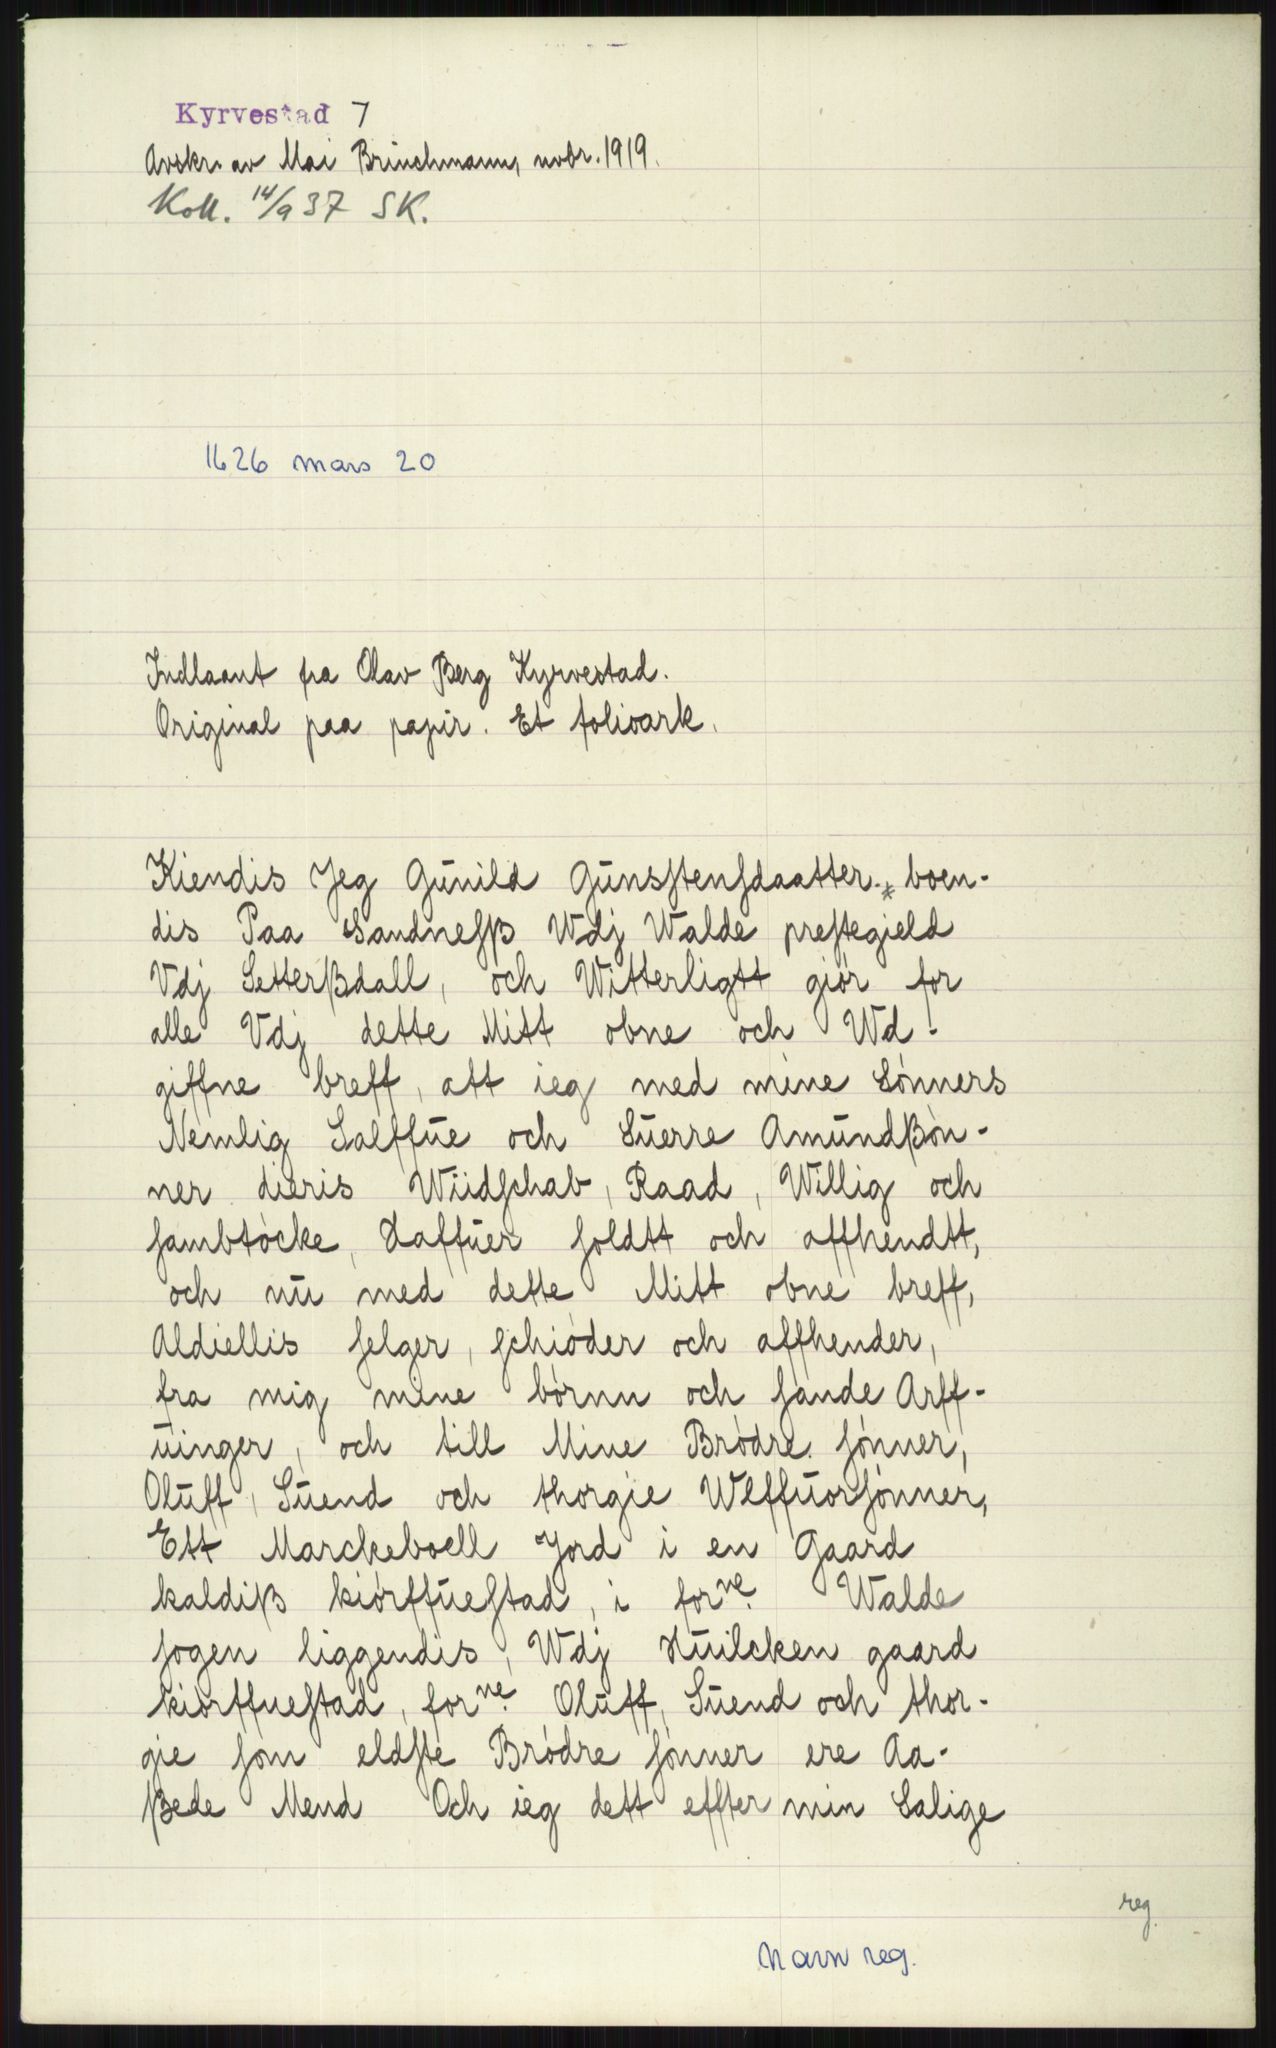 Kyrvestad 7
Avskr. av Mai Brinchmann, novbr. 1919.
Koll. 14/9 37 SK.
1626 mars 20
Indlaant fra Olav Berg Kyrvestad.
Original paa papir. Et folioark.
Kiendis Jeg Gŭnild Gŭnsſtenſdaatter * boen-
dis Paa Sandneſß Wdj Walde preſtegield
Vdj Setterßdall, och Witterligtt giör for
alle Vdj dette Mitt obne och Wd!
giffne breff, att ieg med mine Sönners
Nemlig Salffŭe och Sŭerre Amŭndßön-
ner dieris Wiidſchab, Raad, Willig och
ſambtöcke, Haffŭer ſoldtt och affhendtt,
och nŭ med dette Mitt obne breff,
Aldiellis ſelger, ſchiöder och affhender,
fra mig mine börnn och ſande Arff-
ŭinger, och till Mine Brödre ſönner,
Olŭff, Sŭend och thorgie Wlffŭorſönner,
Ett Marckeboell Jord i en Gaard
kaldiß kiörffŭeſtad, i forne. Walde
ſogen liggendis, Wdj Hŭilcken gaard
kiörffŭeſtad, forne. Olŭff, Sŭend och thor-
gie ſom eldſte Brödre ſönner ere Aa-
ßede Mend Och ieg dett effter min Salige
reg.
Navn reg.